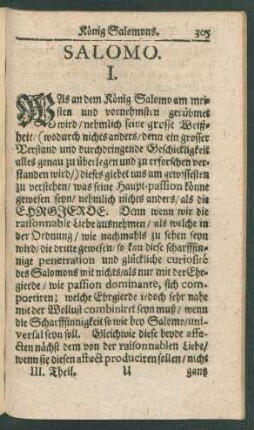 König Salomons. 305
SALOMO.
I.
WAs an dem König Salomo am mei-
sten und vornehmsten gerühmet
wird/ nehmlich seine grosse Weiß-
heit/ (wodurch nichts anders/ denn ein grosser
Verstand und durchdringende Geschickligkeit
alles genau zu überlegen und zu erforschen ver-
standen wird/) dieses giebet uns am gewissesten
zu verstehen/ was seine Haupt-passion könne
gewesen seyn/ nehmlich nichts anders/ als die
EHRGIERDE. Denn wenn wir die
raisonnable Liebe ausnehmen/ als welche in
der Ordnung/ wie nachmahls zu sehen seyn
wird/ die dritte gewesen/ so kan diese scharffsin-
nige penetration und glückliche curiosité
des Salomons mit nichts/ als nur mit der Ehr-
gierde/ wie passion dominante, sich com-
portiren; welche Ehrgierde iedoch sehr nahe
mit der Wellust combiniret seyn muß/ wenn
die Scharffsinnigkeit so wie bey Salomo/ uni-
versal seyn soll. Gleichwie diese beyde affe-
cten nächst dem von der raisonnablen Liebe/
wenn sie diesen affect produciren sollen/ nicht
III. Theil. U gantz